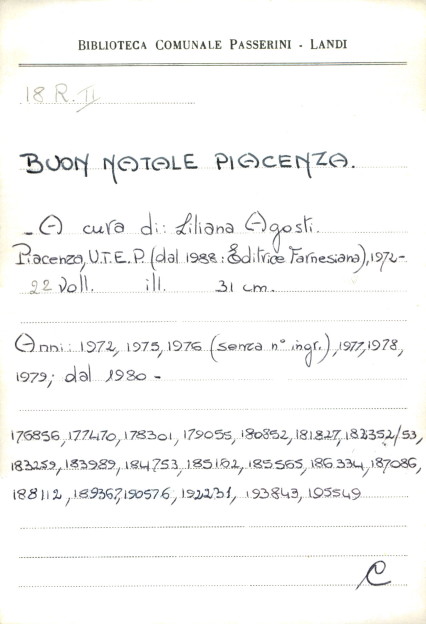 BIBLIOTECA COMUNALE PASSERINI - LANDI
18 R. II
BUON NATALE PIACENZA.
- A cura di: Liliana Agosti.
Piacenza, U.T.E.P. (dal 1988: Editrice Farnesiana), 1972-
22 voll. ill. 31 cm.
Anni: 1972, 1975, 1976 (senza n° ingr.), 1977, 1978,
1979; dal 1980 -
176856, 177470, 178301, 179055, 180852, 181827, 182352/53,
183259, 183989, 184753, 185162, 185565, 186334, 187086,
188112, 189367, 190576, 192231, 193843, 195549
C